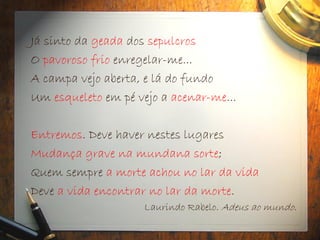 Já sinto da geada dos sepulcros
O pavoroso frio enregelar-me...
A campa vejo aberta, e lá do fundo
Um esqueleto em pé vejo a acenar-me...
Entremos. Deve haver nestes lugares
Mudança grave na mundana sorte;
Quem sempre a morte achou no lar da vida
Deve a vida encontrar no lar da morte.
Laurindo Rabelo. Adeus ao mundo.